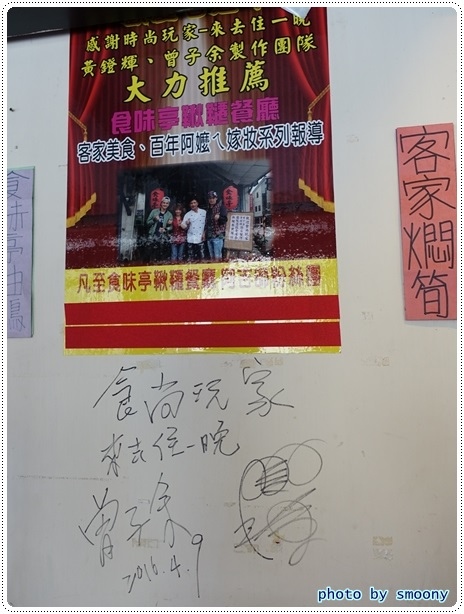 感謝時尚玩家-來去住一晚
黃鐙輝、曾子余製作團隊
大力推薦
食味亭鞦韆餐廳
客家美食、百年阿嬤ㄟ嫁妝系列報導
凡至食味亭鞦韆餐廳
粉絲團
食味亭
客家燜筍
食尚玩家
來去住一晚
曾子余
2016.4.9
photo by smoony